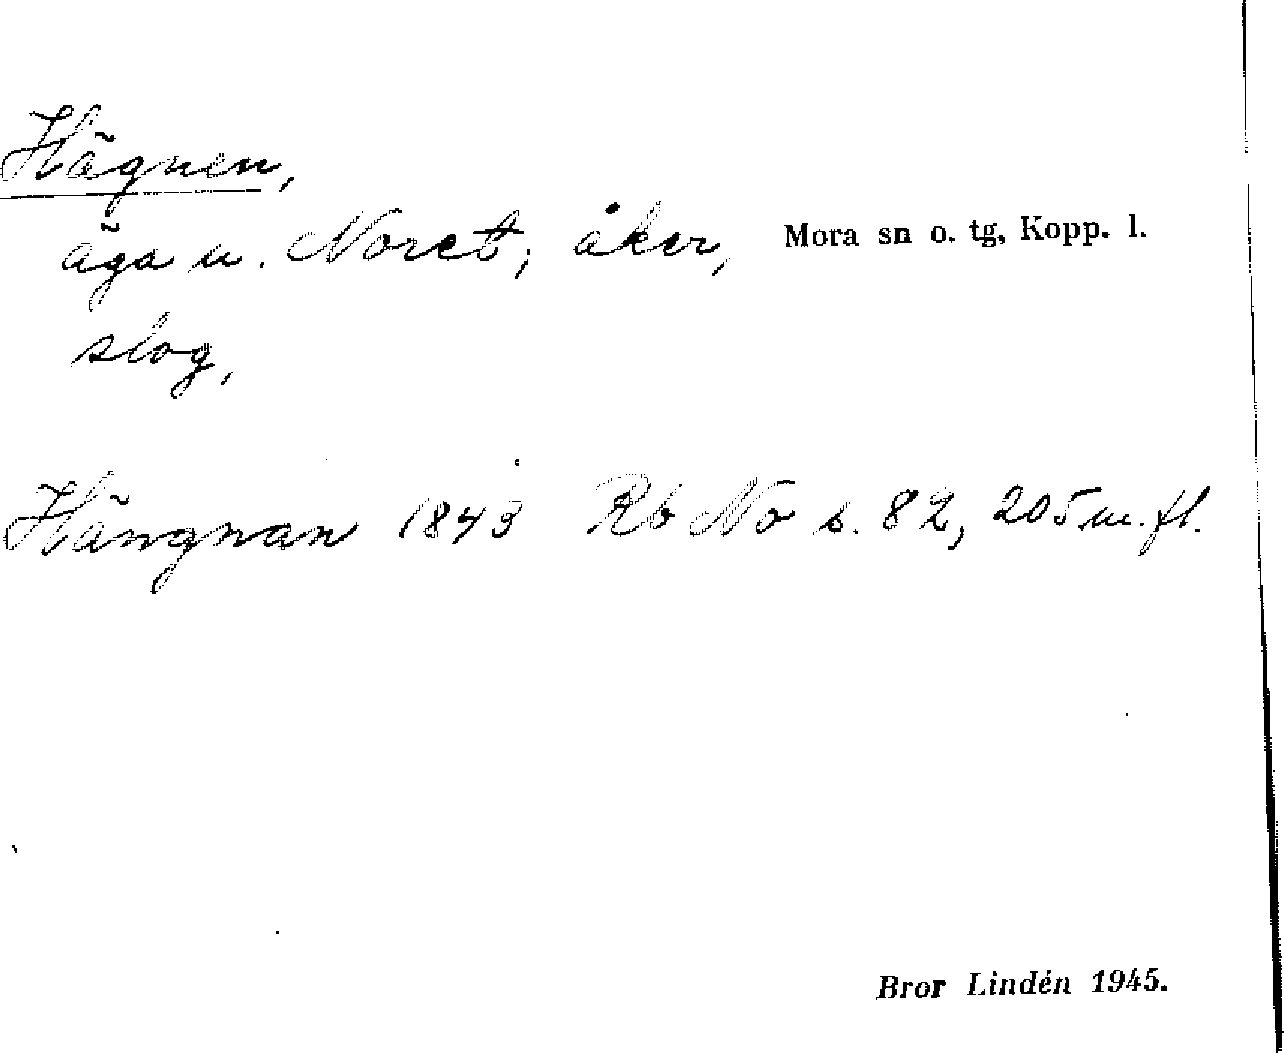 Hägnen,
äga u. Noret, åker,
Mora sn o. tg, Kopp. l.
slog,
Hängnan 1843 Rb No s. 82, 205 m. fl.
Bror Lindén 1945.